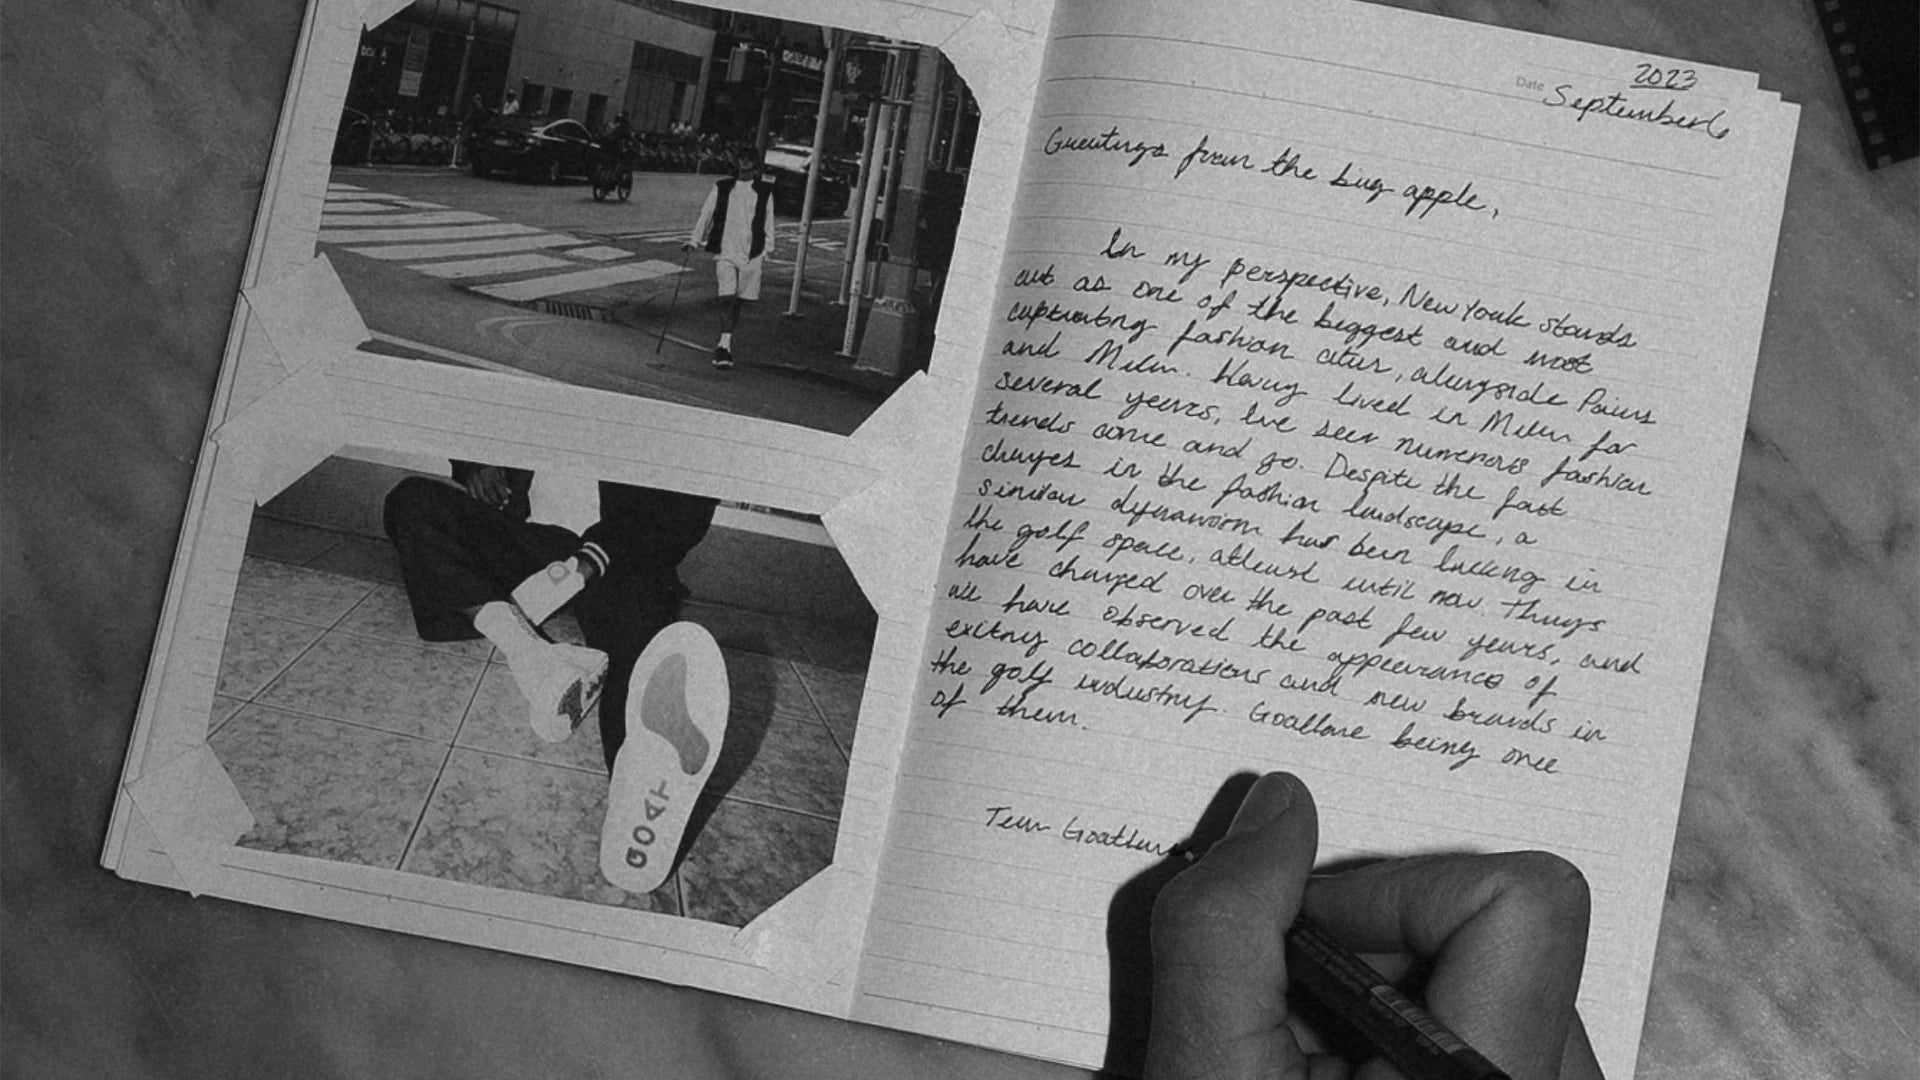 GOAT
2023
Date September 6
Greetings from the big apple,
In my perspective, New York stands
out as one of the biggest and most
captivating fashion cities, alongside Paris
and Milan. Having lived in Milan for
several years, Ive seen numerous fashion
trends come and go. Despite the fast
changes in the fashion landscape, a
similar dynamism has been lacking in
the golf space, atleast until now. Things
have changed over the past few years, and
we have observed the appearance of
exiting collaborations and new brands in
the golf industry. Goatlane being one
of them.
Team Goatlane